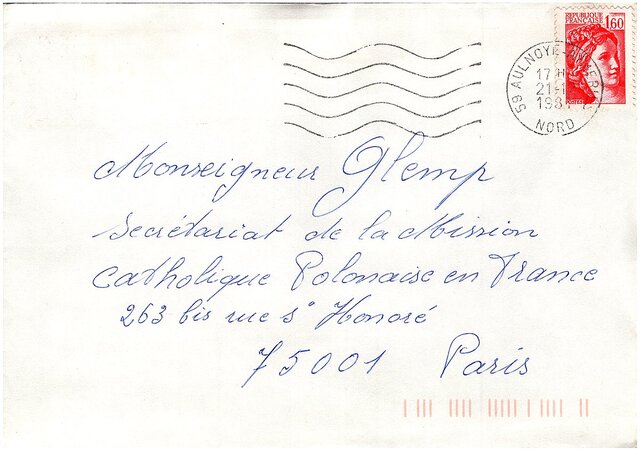 REPUBLIQUE
FRANCAISE 1,60
59 AULNOYE-AYMERIES
17H
21-1
1981
NORD
Monseigneur Glemp
secrétariat de la Mission
catholique Polonaise en France
263 bis rue s° Honoré
75001 Paris